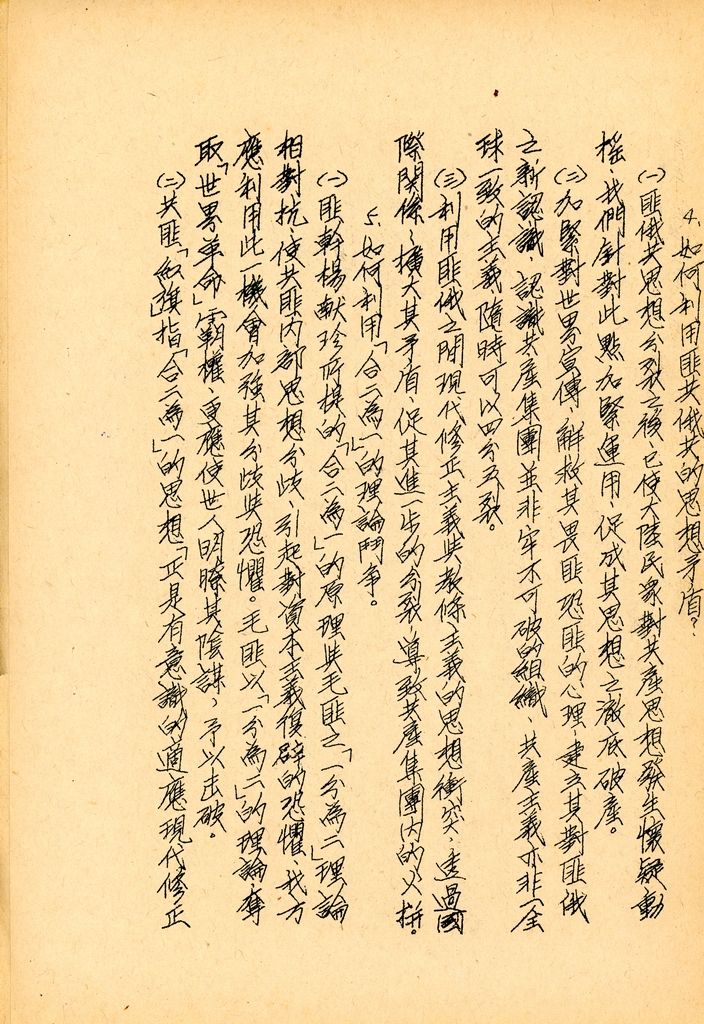 4. 如何利用匪共俄共的思想矛盾?
(一)匪俄共思想分裂之後、已使大陸民衆對共產思想發生懷疑動
搖、我們針對此點加緊運用、促成其思想之澈底破產。
(二)加緊對世界宣傳、解救其畏匪恐匪的心理、建立其對匪俄
之新認識、認識共產集團並非牢不可破的組織、共產主義亦非一全
球一致的主義隨時可以四分五裂。
(三)利用匪俄之間現代修正主義與教條主義的思想衝突、透過國
際關係、擴大其矛盾、促其進一步的分裂、導致共產集團內的火拼。
5. 如何利用「合二為一」的理論鬥爭。
(一)匪幹楊献珍所提的「合二為一」的原理與毛匪之「一分為二」理論
相對抗、使共匪內部思想分歧、引起對資本主義復辟的恐懼、我方
應利用此一機會加強其分歧與恐懼。毛匪以「一分為二」的理論奪
取「世界革命」霸權、更應使世人明瞭其陰謀、予以击破。
(二)共匪「紅旗」指「合二為一」的思想「正是有意識的適應現代修正